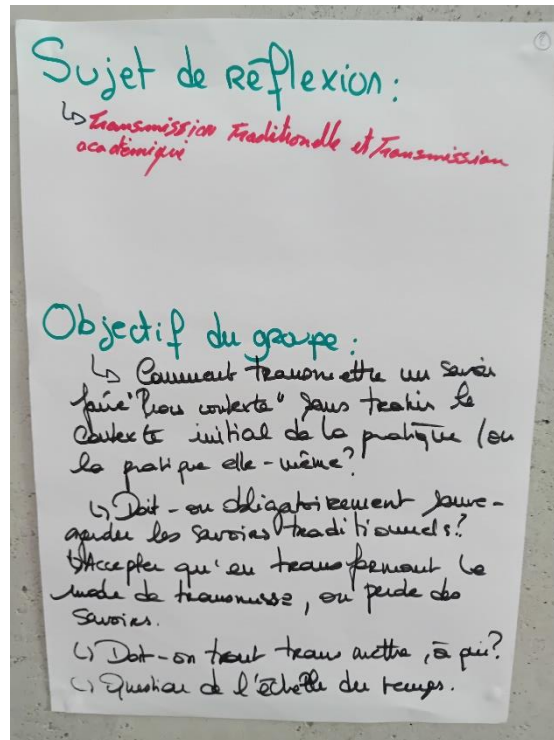 Sujet de Réflexion :
↳ Transmission Traditionelle et Transmission
académique
Objectif du groupe :
↳ Comment transmettre un savoir
faire "hors contexte" sans trahir le
contexte initial de la pratique (ou
la pratique elle-même?
↳ Doit-on obligatoirement sauve-
garder les savoirs traditionnels?
↳ Accepter qu'en transformant le
mode de , on perde des
savoirs.
↳ Doit-on tout transmettre, à qui?
↳ Question de l'échelle du temps.